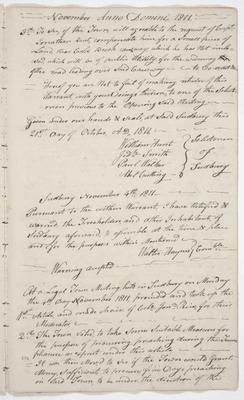 November Anno Domini 1811.
3d To see if the Town will agreeable to the request of Capt.
Jonathan
him for a small piece of
Land near Lake Brook causeway which he has not
sold which will be of public Utility for the widening
the road leading over said Causeway
Hereof you are Not to fail of making return of this
Warrant with your doings thereon to one of the Select
men previous to the Opening said Meeting
Given under our hands & Seals, at Said Sudbury this
21st Day of October, AD. 1811
William Hunt
Smith
Paul Walker
Abel Cutting
Selectmen
of
Sudbury
Sudbury November 4th. 1811.
Pursuant to the within Warrant I have Notified &
warned the Freeholders and other Inhabitants of
Sudbury aforesaid, to assemble at the time & place
and for the purposes within Mentioned
Walter Haynes Constble
Warning accepted
At a Legal Town Meeting held in Sudbury on Monday
the 4th Day November 1811 proceeded and took up the
1st Article and made choice of Colo. Jona. Rice for their
Moderator
2d The Town Voted to take Some Suitable Measures for
the purpose of procuring preaching during the
pleasure or
under this article
It was then Moved to see if the Town would Grant
Money Sufficient to procure Four Days preaching
in this Town to be under the direction of the